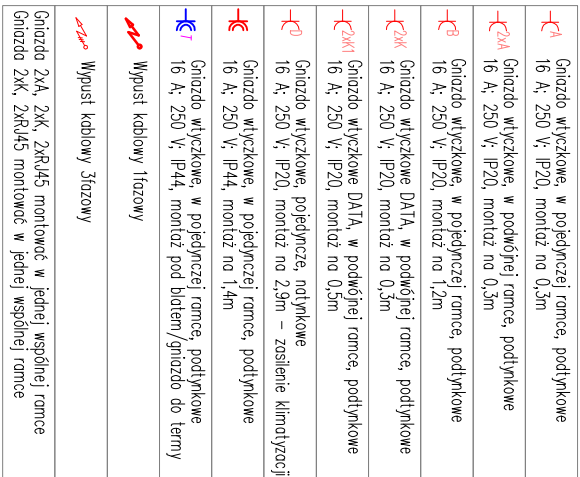 A Gniazdo wtyczkowe, w pojedynczej ramce, podtynkowe
16 A; 250 V; IP20, montaż na 0,3m
2xA Gniazdo wtyczkowe, w podwójnej ramce, podtynkowe
16 A; 250 V; IP20, montaż na 0,3m
B Gniazdo wtyczkowe, w pojedynczej ramce, podtynkowe
16 A; 250 V; IP20, montaż na 1,2m
2xK Gniazdo wtyczkowe DATA, w podwójnej ramce, podtynkowe
16 A; 250 V; IP20, montaż na 0,3m
2xK1 Gniazdo wtyczkowe DATA, w podwójnej ramce, podtynkowe
16 A; 250 V; IP20, montaż na 0,5m
D Gniazdo wtyczkowe, pojedyncze, natynkowe
16 A; 250 V; IP20, montaż na 2,9m – zasilenie klimatyzacji
Gniazdo wtyczkowe, w pojedynczej ramce, podtynkowe
16 A; 250 V; IP44, montaż na 1,4m
T Gniazdo wtyczkowe, w pojedynczej ramce, podtynkowe
16 A; 250 V; IP44, montaż pod blatem/gniazdo do termy
Wypust kablowy 1fazowy
Wypust kablowy 3fazowy
Gniazda 2xA, 2xK, 2xRJ45 montować w jednej wspólnej ramce
Gniazda 2xK, 2xRJ45 montować w jednej wspólnej ramce